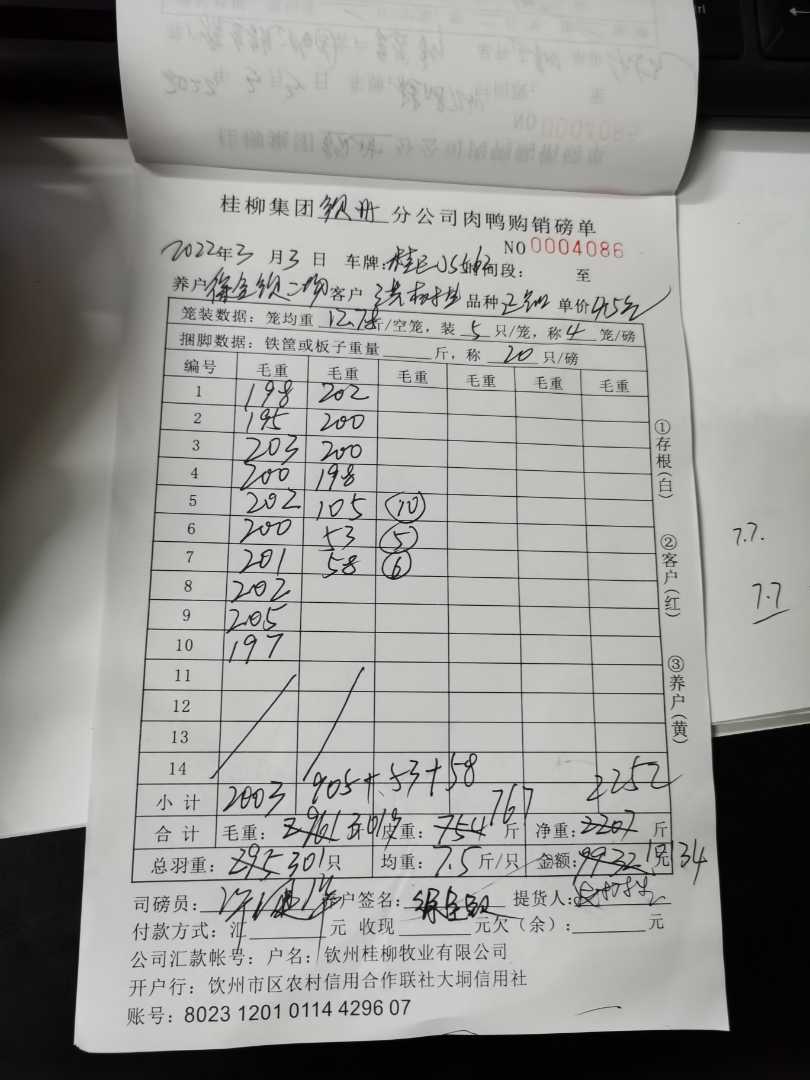 桂柳集团钦州分公司肉鸭购销磅单
NO 0004086
2022年3月3日 车牌: 时间段: 至
养户 客户 品种 单价4.5元
笼装数据：笼均重 12.78斤/空笼，装 5 只/笼，称 4 笼/磅
捆脚数据：铁筐或板子重量 斤，称 20 只/磅
编号 毛重 毛重 毛重 毛重 毛重 毛重
1 198 202
2 195 200
3 203 200
4 200 198
5 202 105 10
6 200 53 5
7 201 58 6
8 202
9 205
10 197
11
12
13
14
小计 2003 905+53+58 2252
合计 毛重：2961 3019 斤 皮重：754 767 斤 净重：2207 斤
总羽重：295 301只 均重：7.5斤/只 金额：9932 10134元
司磅员： 养户签名： 提货人：
付款方式：汇 元 收现 元欠（余）： 元
公司汇款帐号：户名：钦州桂柳牧业有限公司
开户行：钦州市区农村信用合作联社大垌信用社
账号：8023 1201 0114 4296 07
①存根(白)
②客户(红)
③养户(黄)
7.7.
7.7